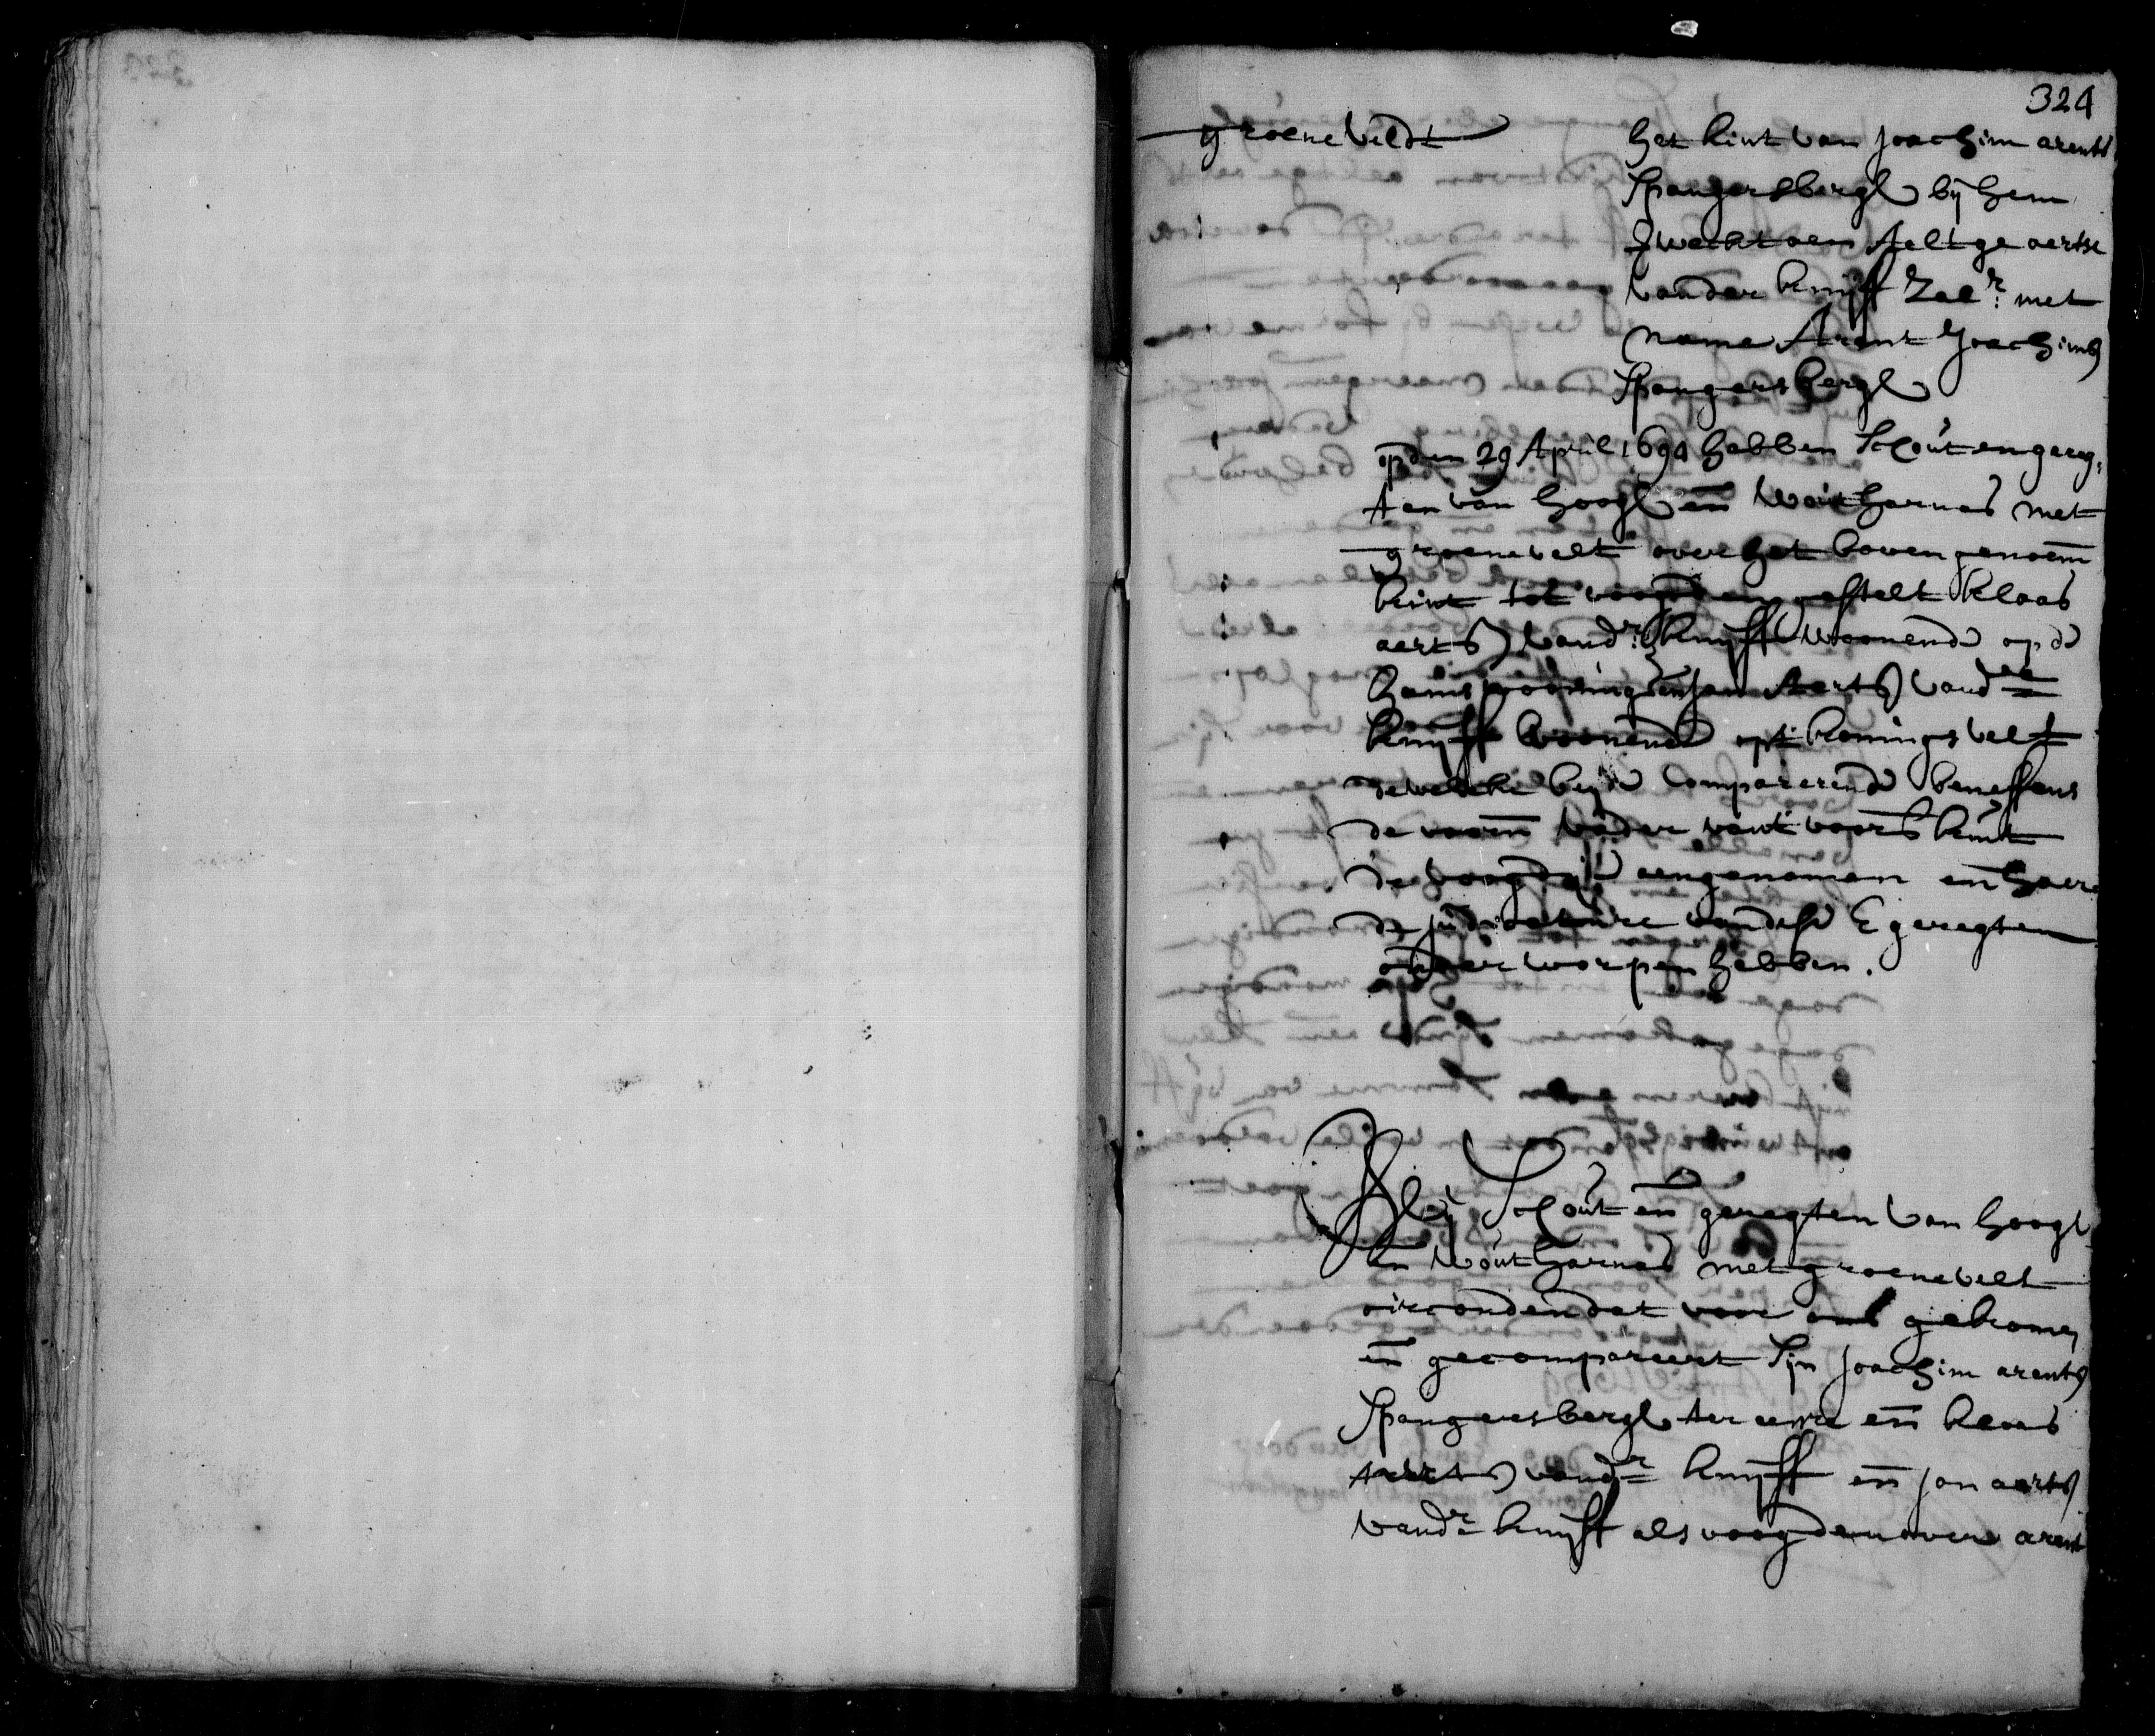 324
groeneveldt
het kint van Joachim arents
Spangersbergh bij hem
verwekt aen Aeltge aertse
vander knijff Zalr: met
name Arent Joachims
Spangersbergh
op den 29 April 1694 hebben Schout en gereg,
ten van hoogh en wout harnas met
groenevelt over het boven genoem
kint tot voogden gestelt klaas
aerts vandr: knijff woonende op de
hamswooning en Jan Aerts vander
knijff woonende opt koningsvelt
dewelcke beijde comparerende beneffens
de voorn vader vant voors kint
de voogdij aengenomen en haer
de judicature vandese E geregten
onderworpen hebben.
Wij Schout en geregten van hoogh
en Wout harnas met groenevelt
oirconden dat voor ons gekomen
en gecompareert sijn Joachim arents
Spangersbergh ter eenre en klaas
Aerts vandr knijff en Jan aerts
vandr knijff als voogden over arent